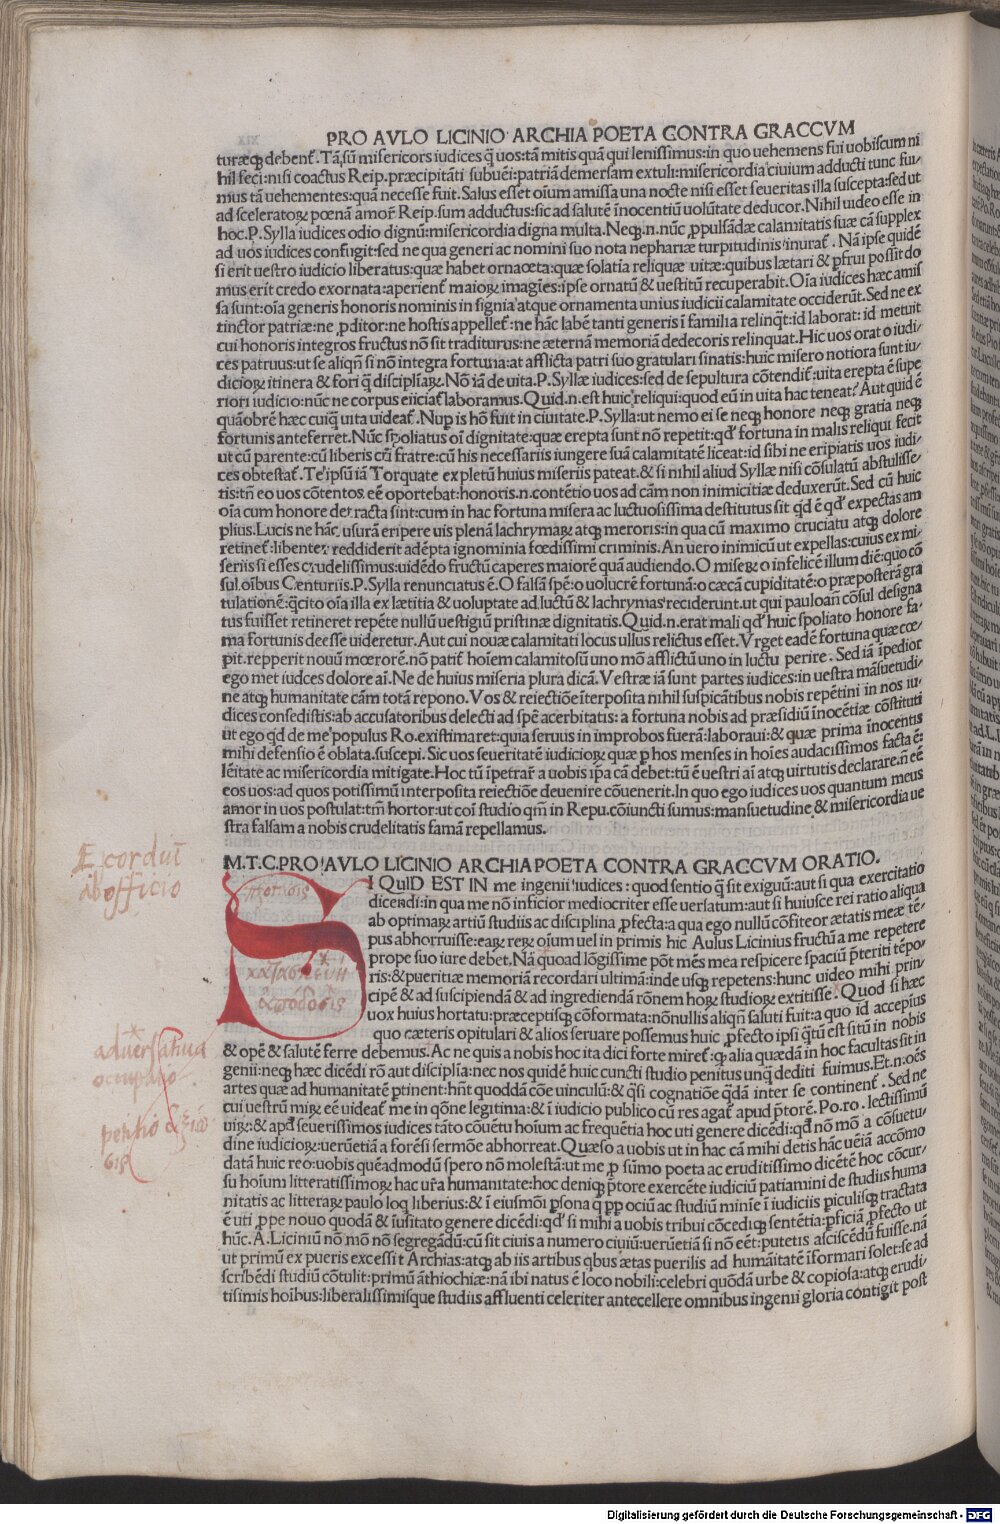 PRO AVLO LICINIO ARCHIA POETA CONTRA GRACCVM
turæq; debent̃. Tã.sũ misericors iudices q̃ uos: tã mitis quã qui lenissimus: in quo uehemens fui uobiscum ni
hil feci: nisi coactus Reip. præcipitãti subuẽi: patriã demersam extuli: misericordia ciuium adducti tunc fui/
mus tã uehementes: quã necesse fuit. Salus esset oĩum amissa una nocte nisi esset seueritas illa suscepta: sed ut
ad sceleratoꝝ pœnã amoř Reip. sum adductus: sic ad salutẽ ĩnocentiũ uolũtate deducor. Nihil uideo esse in
hoc. P. Sylla iudices odio dignũ: misericordia digna multa. Neq;.n. nũc ꝓpulsãdæ calamitatis suæ cã supplex
ad uos iudices confugit: sed ne qua generi ac nomini suo nota nephariæ turpitudinis inurat̃. Nã ipse quidẽ
si erit uestro iudicio liberatus: quæ habet ornaoẽta: quæ solatia reliquæ uitæ: quibus lætari & ꝑfrui possit do
mus erit credo exornata: aperient̃ maioꝝ imagĩes: ipse ornatũ & uestitũ recuperabit. Oĩa iudices hæc amis
sa sunt: oĩa generis honoris nominis in signia atque ornamenta unius iudicii calamitate occiderũt. Sed ne ex
tinctor patriæ: ne ꝓditor: ne hostis appellet̃: ne hãc labẽ tanti generis ĩ familia relinq̃t: id laborat: id metuit
cui honoris integros fructus nõ sit traditurus: ne æternã memoriã dedecoris relinquat. Hic uos orat o iudi/
ces patruus: ut se aliqñ si nõ integra fortuna: at afflicta patri suo gratulari sinatis: huic misero notiora sunt iu/
dicioꝝ itinera & fori q̃ disciplĩaꝝ. Nõ iã de uita. P. Syllæ iudices: sed de sepultura cõtendit̃: uita erepta ẽ supe
riori iudicio: nũc ne corpus eiiciat̃ laboramus. Quid.n. est huic reliqui: quod eũ in uita hac teneat? Aut quid ẽ
quãobrẽ hæc cuiq̃ uita uideat̃. Nup is hõ fuit in ciuitate. P. Sylla: ut nemo ei se neq; honore neq; gratia neq;
fortunis anteferret. Nũc spoliatus oĩ dignitate: quæ erepta sunt nõ repetit: qd́ fortuna in malis reliqui fecit
ut cũ parente: cũ liberis cũ fratre: cũ his necessariis iungere suã calamitatẽ liceat: id sibi ne eripiatis uos iudi/
ces obtestat̃. Te ipsũ iã Torquate expletũ huius miseriis pateat. & si nihil aliud Syllæ nisi cõsulatũ abstulisse/
tis: tñ eo uos cõtentos eẽ oportebat: honoris.n. contẽtio uos ad cãm non inimicitiæ deduxerũt. Sed cũ huic
oĩa cum honore detracta sint: cum in hac fortuna misera ac luctuosissima destitutus sit qd́ ẽ qd́ expectas am
plius. Lucis ne hãc usurã eripere uis plenã lachrymaꝝ atq; meroris: in qua cũ maximo cruciatu atq; dolore
retinet̃: libenter reddiderit adẽpta ignominia fœdissimi criminis. An uero inimicũ ut expellas: cuius ex mi/
seriis si esses crudelissimus: uidẽdo fructũ caperes maiorẽ quã audiendo. O miseꝝ o infelicẽ illum diẽ: quo cõ
sul oĩbus Cẽnturiis. P. Sylla renunciatus ẽ. O falsã spẽ: o uolucrẽ fortunã: o cæcã cupiditatẽ: o præposterã gra
tulationẽ: q̃cito oĩa illa ex lætitia & uoluptate ad luctũ & lachrymas reciderunt. ut qui pauloañ cõsul designa
tus fuisset retineret repẽte nullũ uestigiũ pristinæ dignitatis. Quid.n. erat mali qd́ huic spoliato honore fa/
ma fortunis deesse uideretur. Aut cui nouæ calamitati locus ullus relictus esset. Vrget eadẽ fortuna quæ cœ/
pit. repperit nouũ mœrorẽ. nõ patit̃ hoĩem calamitosũ uno mõ afflictũ uno in luctu perire. Sed iã ĩpedior
ego met iudces dolore aĩ. Ne de huius miseria plura dicã. Vestræ iã sunt partes iudices: in uestra mãsuetudi/
ne atq; humanitate cãm totã repono. Vos & reiectiõe ĩterposita nihil suspicãtibus nobis repẽtini in nos iu/
dices consedistis: ab accusatoribus delecti ad spẽ acerbitatis: a fortuna nobis ad præsidiũ ĩnocẽtiæ cõstituti
ut ego qd́ de me populus Ro. existimaret: quia seruus in improbos fuerã: laboraui: & quæ prima ĩnocentis
mihi defensio ẽ oblata. suscepi. Sic uos seueritatẽ iudicioꝝ quæ ꝑ hos menses in hoĩes audacissimos facta ẽ:
lẽitate ac misericordia mitigate. Hoc tũ ĩpetrar̃ a uobis ip̃a cã debet: tũ ẽ uestri aĩ atq; uirtutis declarare.ñ eẽ
eos uos: ad quos potissimũ interposita reiectiõe deuenire cõuenerit. In quo ego iudices uos quantum meus
amor in uos postulat: tm̃ hortor: ut coĩ studio qm̃ in Repu. cõiuncti sumus: mansuetudine & misericordia ue
stra falsam a nobis crudelitatis famã repellamus.
M.T.C. PRO AVLO LICINIO ARCHIA POETA CONTRA GRACCVM ORATIO.
SI QuID EST IN me ingenii iudices: quod sentio q̃ sit exiguũ: aut si qua exercitatio
dicendi: in qua me nõ inficior mediocriter esse uersatum: aut si huiusce rei ratio aliqua
ab optimaꝝ artiũ studiis ac disciplina ꝓfecta: a qua ego nullũ cõfiteor ætatis meæ tẽ/
pus abhorruisse: eaꝝ reꝝ oĩum uel in primis hic Aulus Licinius fructũ a me repetere
prope suo iure debet. Nã quoad lõgissime põt mẽs mea respicere spaciũ p̃teriti tẽpo/
ris: & pueritiæ memoriã recordari ultimã: inde usq; repetens: hunc uideo mihi prin/
cipẽ & ad suscipiendã & ad ingrediendã rõnem hoꝝ studioꝝ extitisse. Quod si hæc
uox huius hortatu: præceptisq; cõformata: nõnullis aliqñ saluti fuit: a quo id accepius
quo cæteris opitulari & alios seruare possemus huic ꝓfecto ipsi q̃tũ est sitũ in nobis
& opẽ & salutẽ ferre debemus. Ac ne quis a nobis hoc ita dici forte miret̃: q; alia quædã in hoc facultas sit in
genii: neq; hæc dicẽdi rõ aut disciplĩa: nec nos quidẽ huic cuncti studio penitus unq̃ dediti fuimus. Et.n. oẽs
artes quæ ad humanitatẽ ptinent: hñt quoddã cõe uinculũ: & q̃si cognatiõe q̃dã inter se continent̃. Sed ne
cui uestrũ miꝝ eẽ uideat̃ me in qõne legitima: & ĩ iudicio publico cũ res agat̃ apud p̃torẽ. Po. ro. lectissimũ
uiꝝ: & apd́ seuerissimos iudices tãto cõuẽtu hoĩum ac frequẽtia hoc uti genere dicẽdi: qd́ nõ mõ a cõsuetu/
dine iudicioꝝ: ueruẽtiã a forẽsi sermõe abhorreat. Quæso a uobis ut in hac cã mihi detis hãc uẽiã accõmo
datã huic reo: uobis quẽadmodũ spero nõ molestã: ut me ꝓ sũmo poeta ac eruditissimo dicẽtẽ hoc cõcur/
su hoĩum litteratissimoꝝ hac ur̃a humanitate: hoc deniq; p̃tore exercẽte iudiciũ patiamini de studiis huma
nitatis ac litteraꝝ paulo loq̃ liberius: & ĩ eiusmõi ꝑsona q̃ ꝓp ociũ ac studiũ minie ĩ iudiciis ꝑiculisq; tractata
ẽ uti ꝓpe nouo quodã & ĩusitato genere dicẽdi: qd́ si mihi a uobis tribui cõcediq; sentẽtia: ꝑficiã ꝓfecto ut
hũc. A. Liciniũ nõ mõ nõ segregãdũ: cũ sit ciuis a numero ciuiũ: ueruẽtiã si nõ eẽt: putetis asciscẽdũ fuisse. nã
ut primũ ex pueris excessit Archias: atq; ab iis artibus qbus ætas puerilis ad humãitatẽ ĩformari solet: se ad
scribẽdi studiũ cõtulit: primũ ãthiochiæ: nã ibi natus ẽ loco nobili: celebri quõdã urbe & copiosa: atq; erudi/
tisimis hoĩbus: liberalissimisque studiis affluenti celeriter antecellere omnibus ingenii gloria contigit post
ab officio
Digitalisierung gefördert durch die Deutsche Forschungsgemeinschaft - DFG